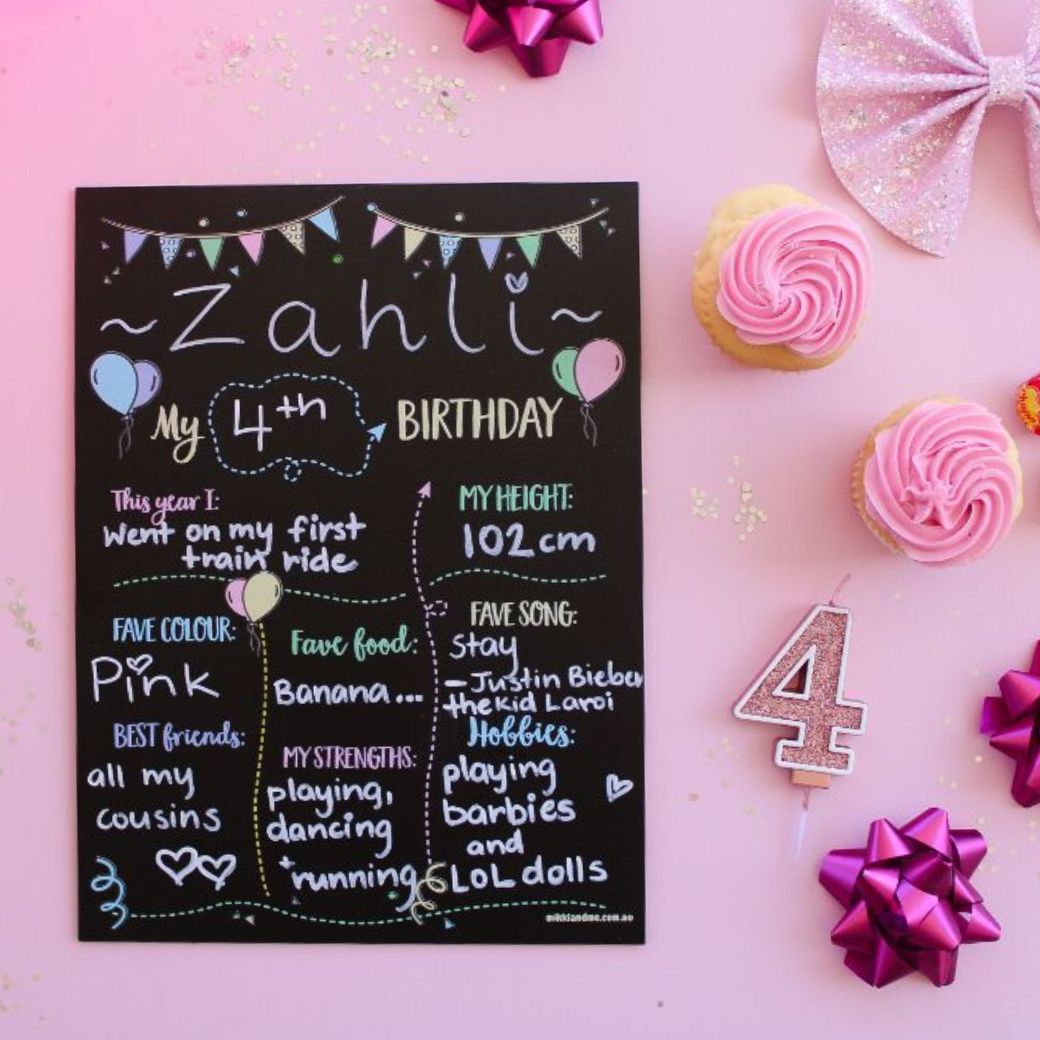 ~Zahli~
My 4th BIRTHDAY
This year I:
Went on my first
train ride
MY HEIGHT:
102cm
FAVE COLOUR:
Pink
Fave food:
Banana...
FAVE SONG:
Stay
-Justin Bieber
the Kid Laroi
BEST friends:
all my
cousins
MY STRENGTHS:
playing,
dancing
+running
Hobbies:
playing
barbies
and
LOL dolls
mikkiandme.com.au
4